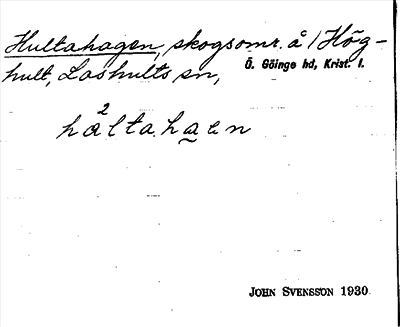 Hultahagen, skogsomr. å 1/Hög-
hult, Loshults sn, Ö. Göinge hd, Krist. l.
2
haltahaen
JOHN SVENSSON 1930.